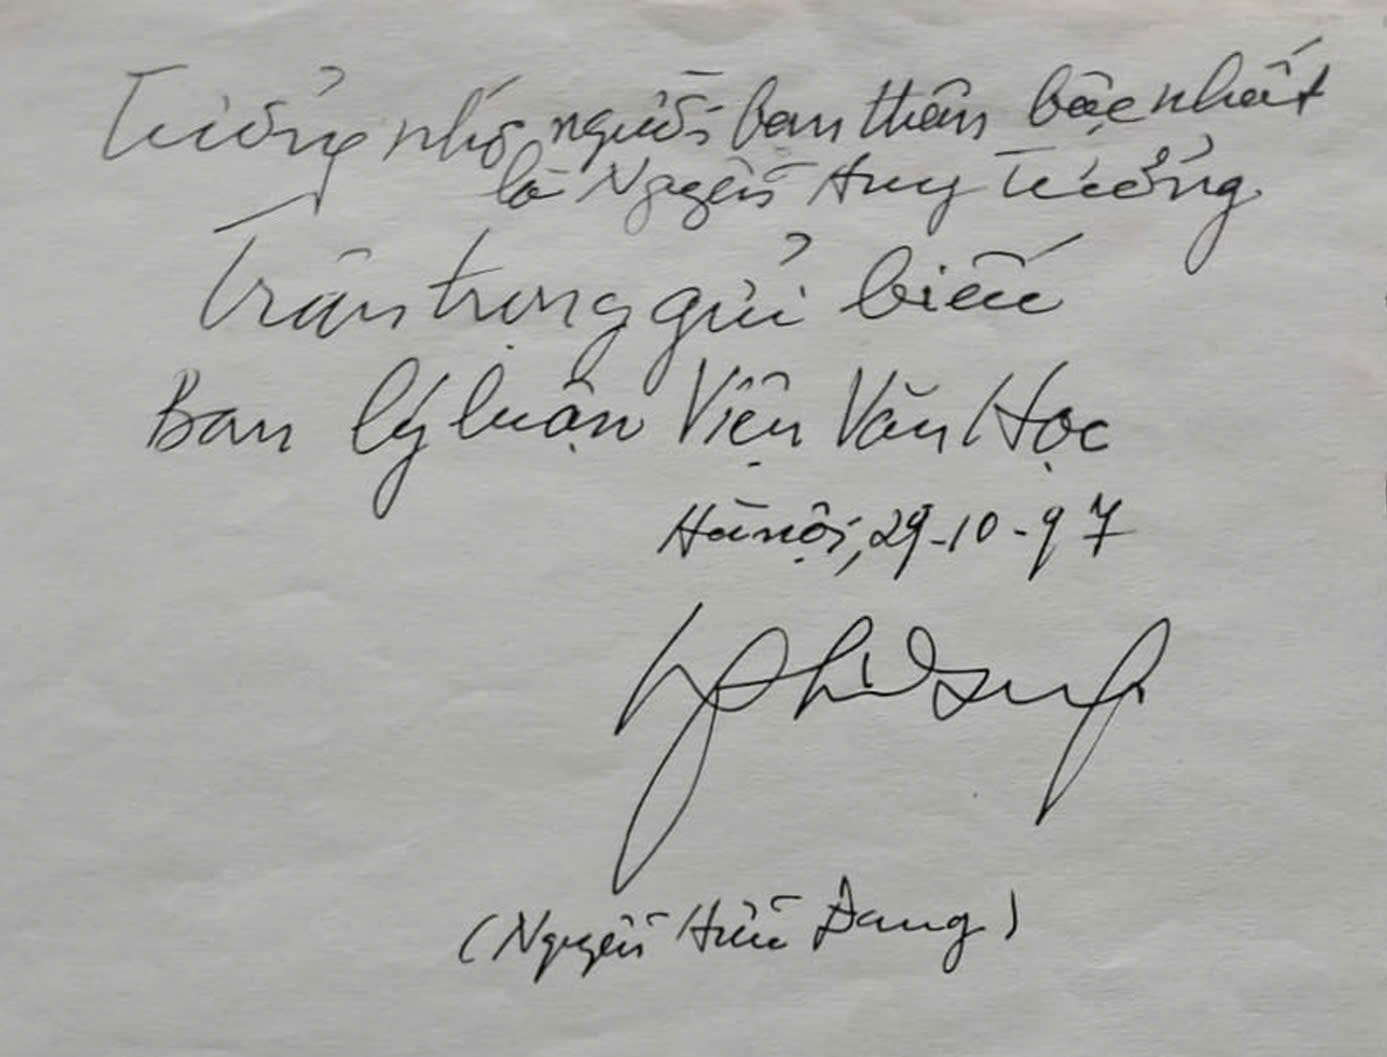 Tưởng nhớ người bạn thân bậc nhất
là Nguyễn Huy Tưởng.
Trân trọng gửi biếu
Ban lý luận Viện Văn Học
Hà nội, 29-10-97
(Nguyễn Hữu Đang)